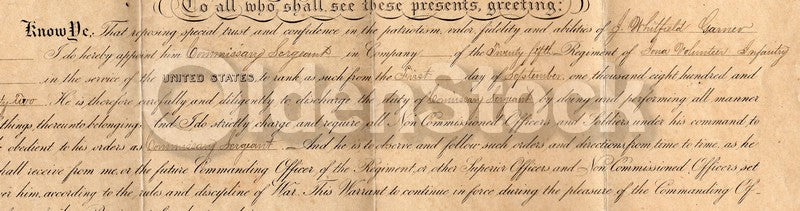 To all who shall see these presents, greeting:
Know Ye, That reposing special trust and confidence in the patriotism, valor, fidelity and abilities of J. Whitfield Garner
I do hereby appoint him Commissary Sergeant in Company of the Twenty fifth Regiment of Iowa Volunteer Infantry
in the service of the UNITED STATES, to rank as such from the First day of September, one thousand eight hundred and
ty Two. He is therefore carefully and diligently to discharge the duty of Commissary Sergeant by doing and performing all manner
things thereunto belonging. And I do strictly charge, and require, all Non Commissioned Officers and Soldiers under his command, to
e obedient to his orders as Commissary Sergeant. And he is to observe and follow such orders and directions, from time to time, as he
shall receive from me, or the future Commanding Officer of the Regiment, or other Superior Officers and Non Commissioned Officers set
ver him, according to the rules and discipline of War. This Warrant to continue in force during the pleasure of the Commanding Of-
OldenStock